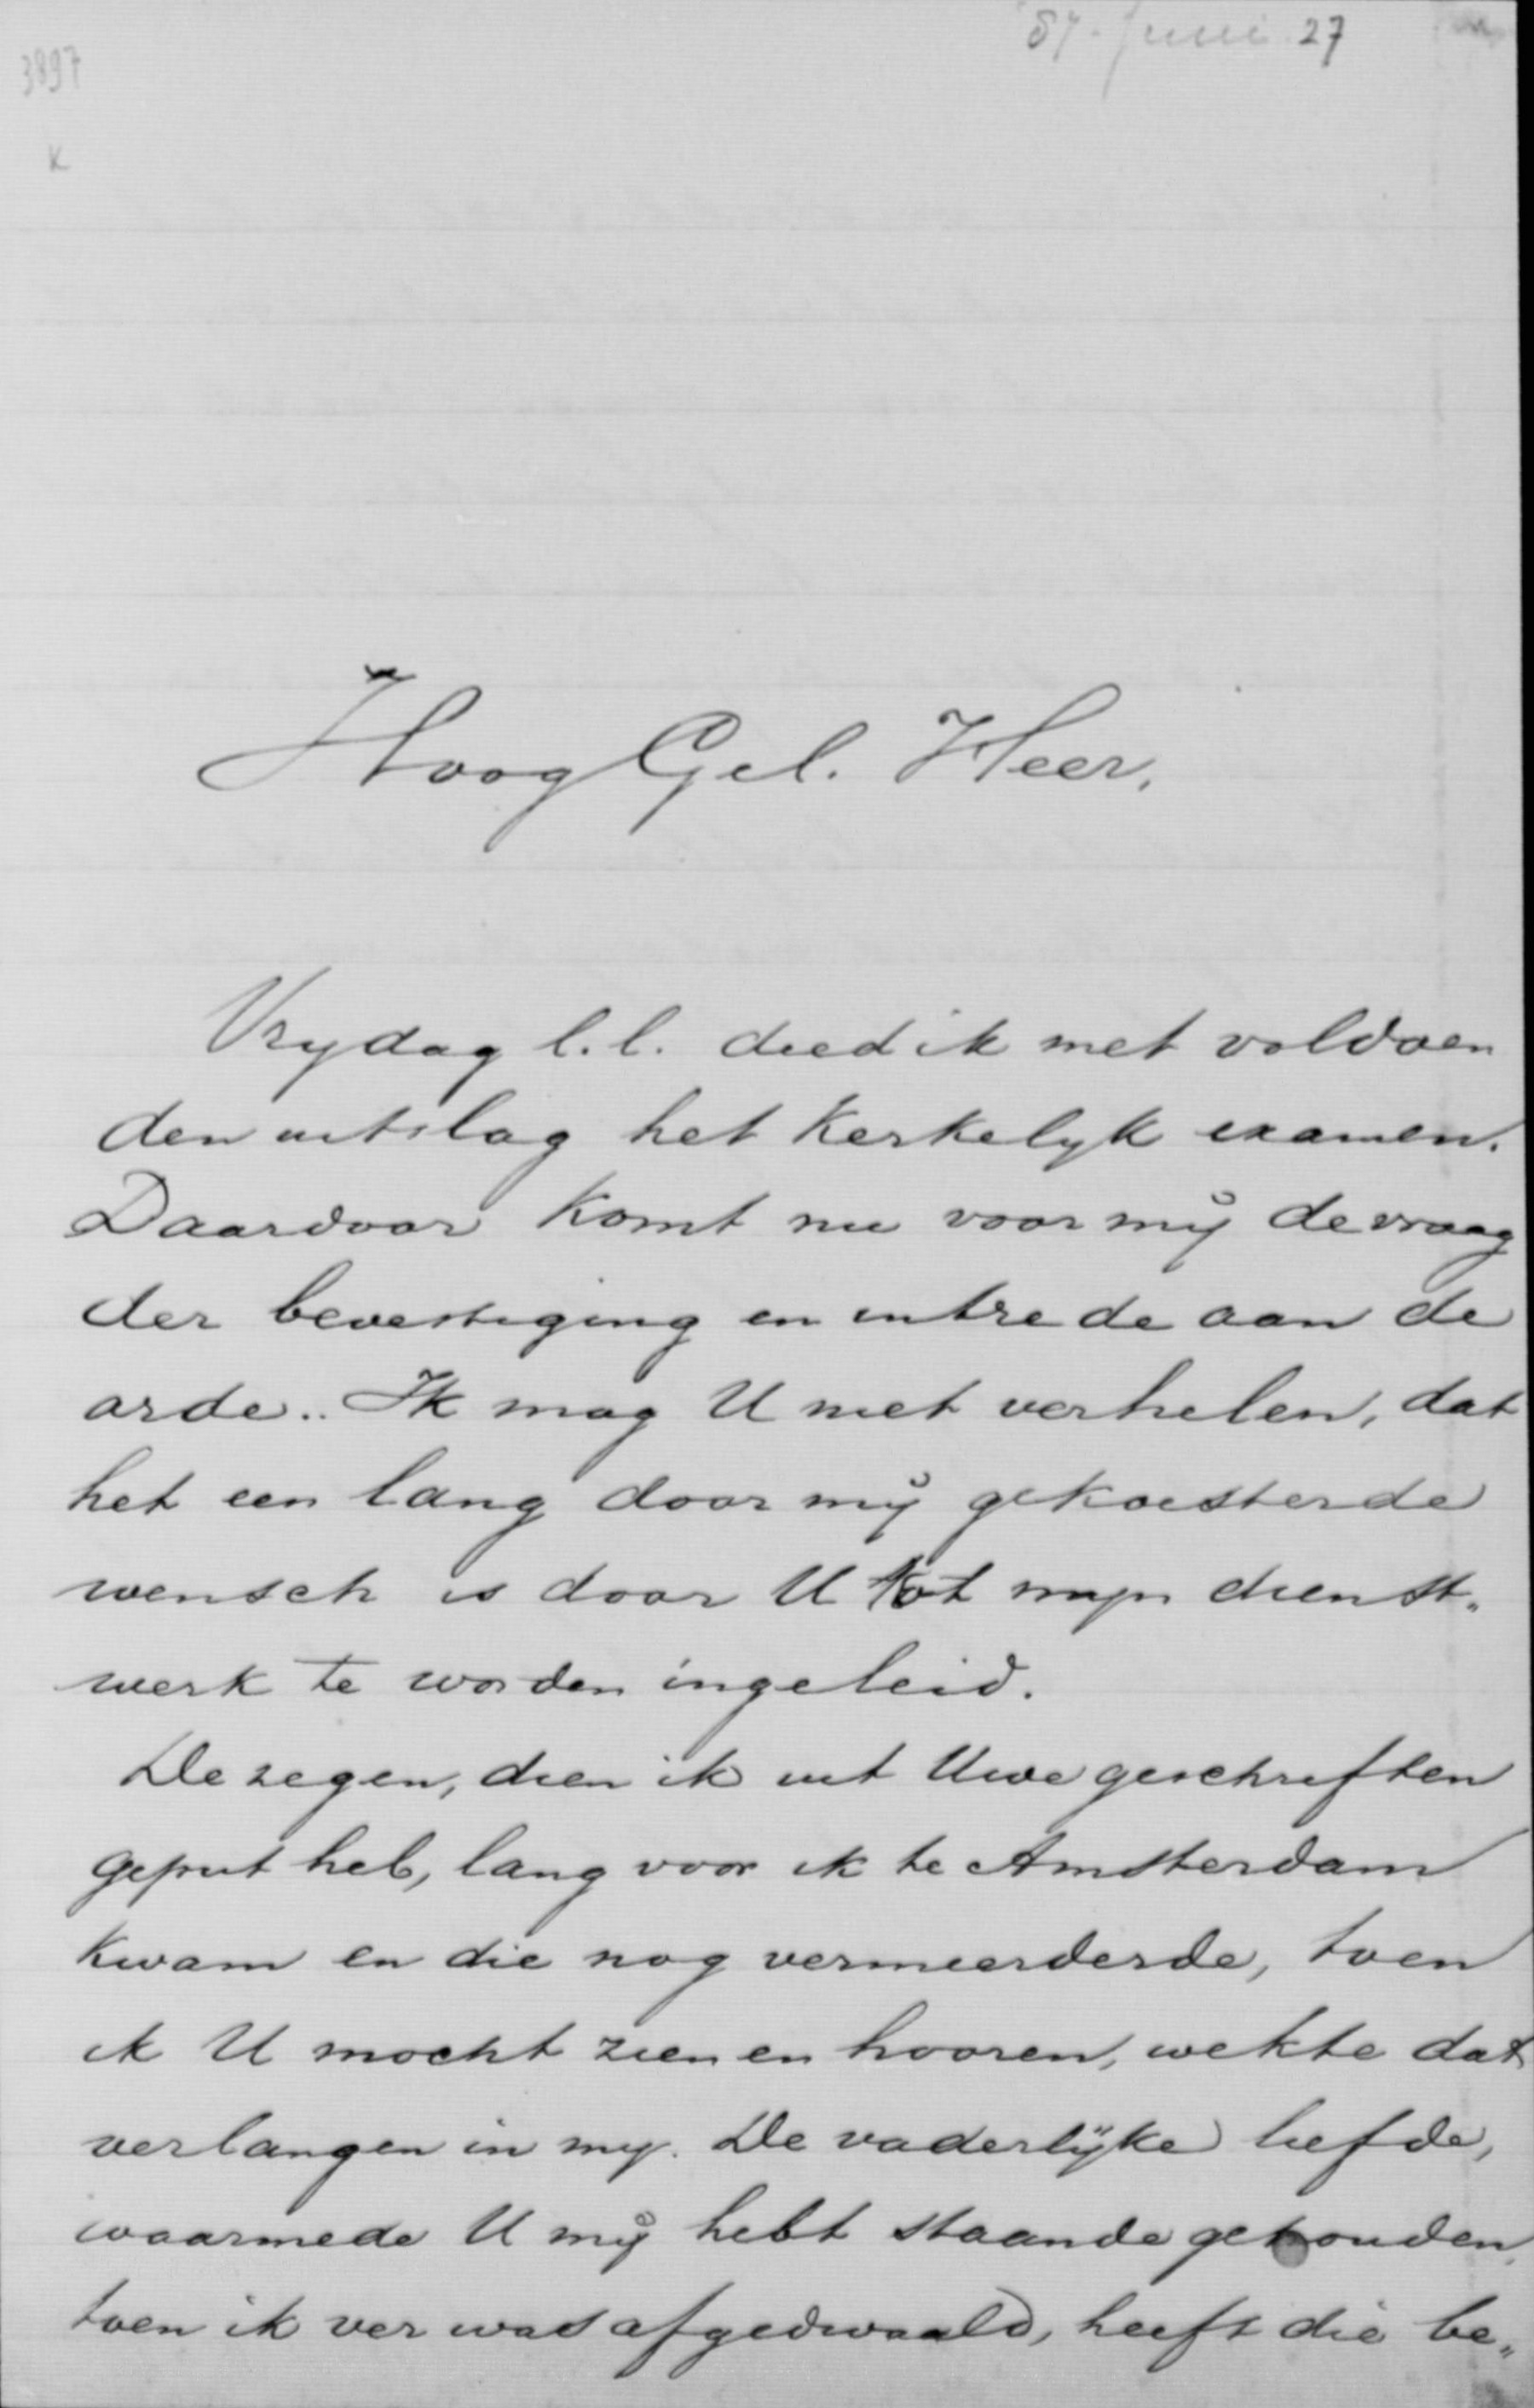 '87. Juni 27
3897
K
Hoog Gel. Heer,
Vrydag l.l. deed ik met voldoen
den uitslag het Kerkelyk examen.
Daardoor komt nu voor mij de vraag
der bevestiging en intrede aan de
orde.. Ik mag U niet verhelen, dat
het een lang door mij gekoesterde
wensch is door U tot myn dienst„
werk te worden ingeleid.
De zegen, dien ik uit Uwe geschriften
geput heb, lang voor ik te Amsterdam
kwam en die nog vermeerderde, toen
ik U mocht zien en hooren, wekte dat
verlangen in my. De vaderlijke liefde,
waarmede U mij hebt staande gehouden,
toen ik ver was afgedwaald, heeft die be„